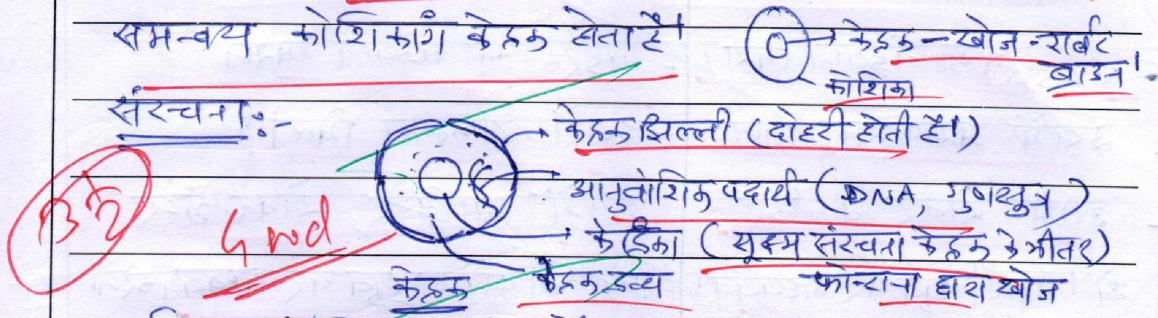 समन्वय कोशिकांग केन्द्रक होता है।
केन्द्रक - खोज - रार्बट
ब्राउन।
कोशिका
संरचना:-
केन्द्रक झिल्ली (दोहरी होती है।)
आनुवांशिक पदार्थ (DNA, गुणसुत्र)
केंद्रिका (सूक्ष्म संरचना केन्द्रक के भीतर)
फोन्टाना द्वारा खोज
केन्द्रक द्रव्य
केन्द्रक
Good